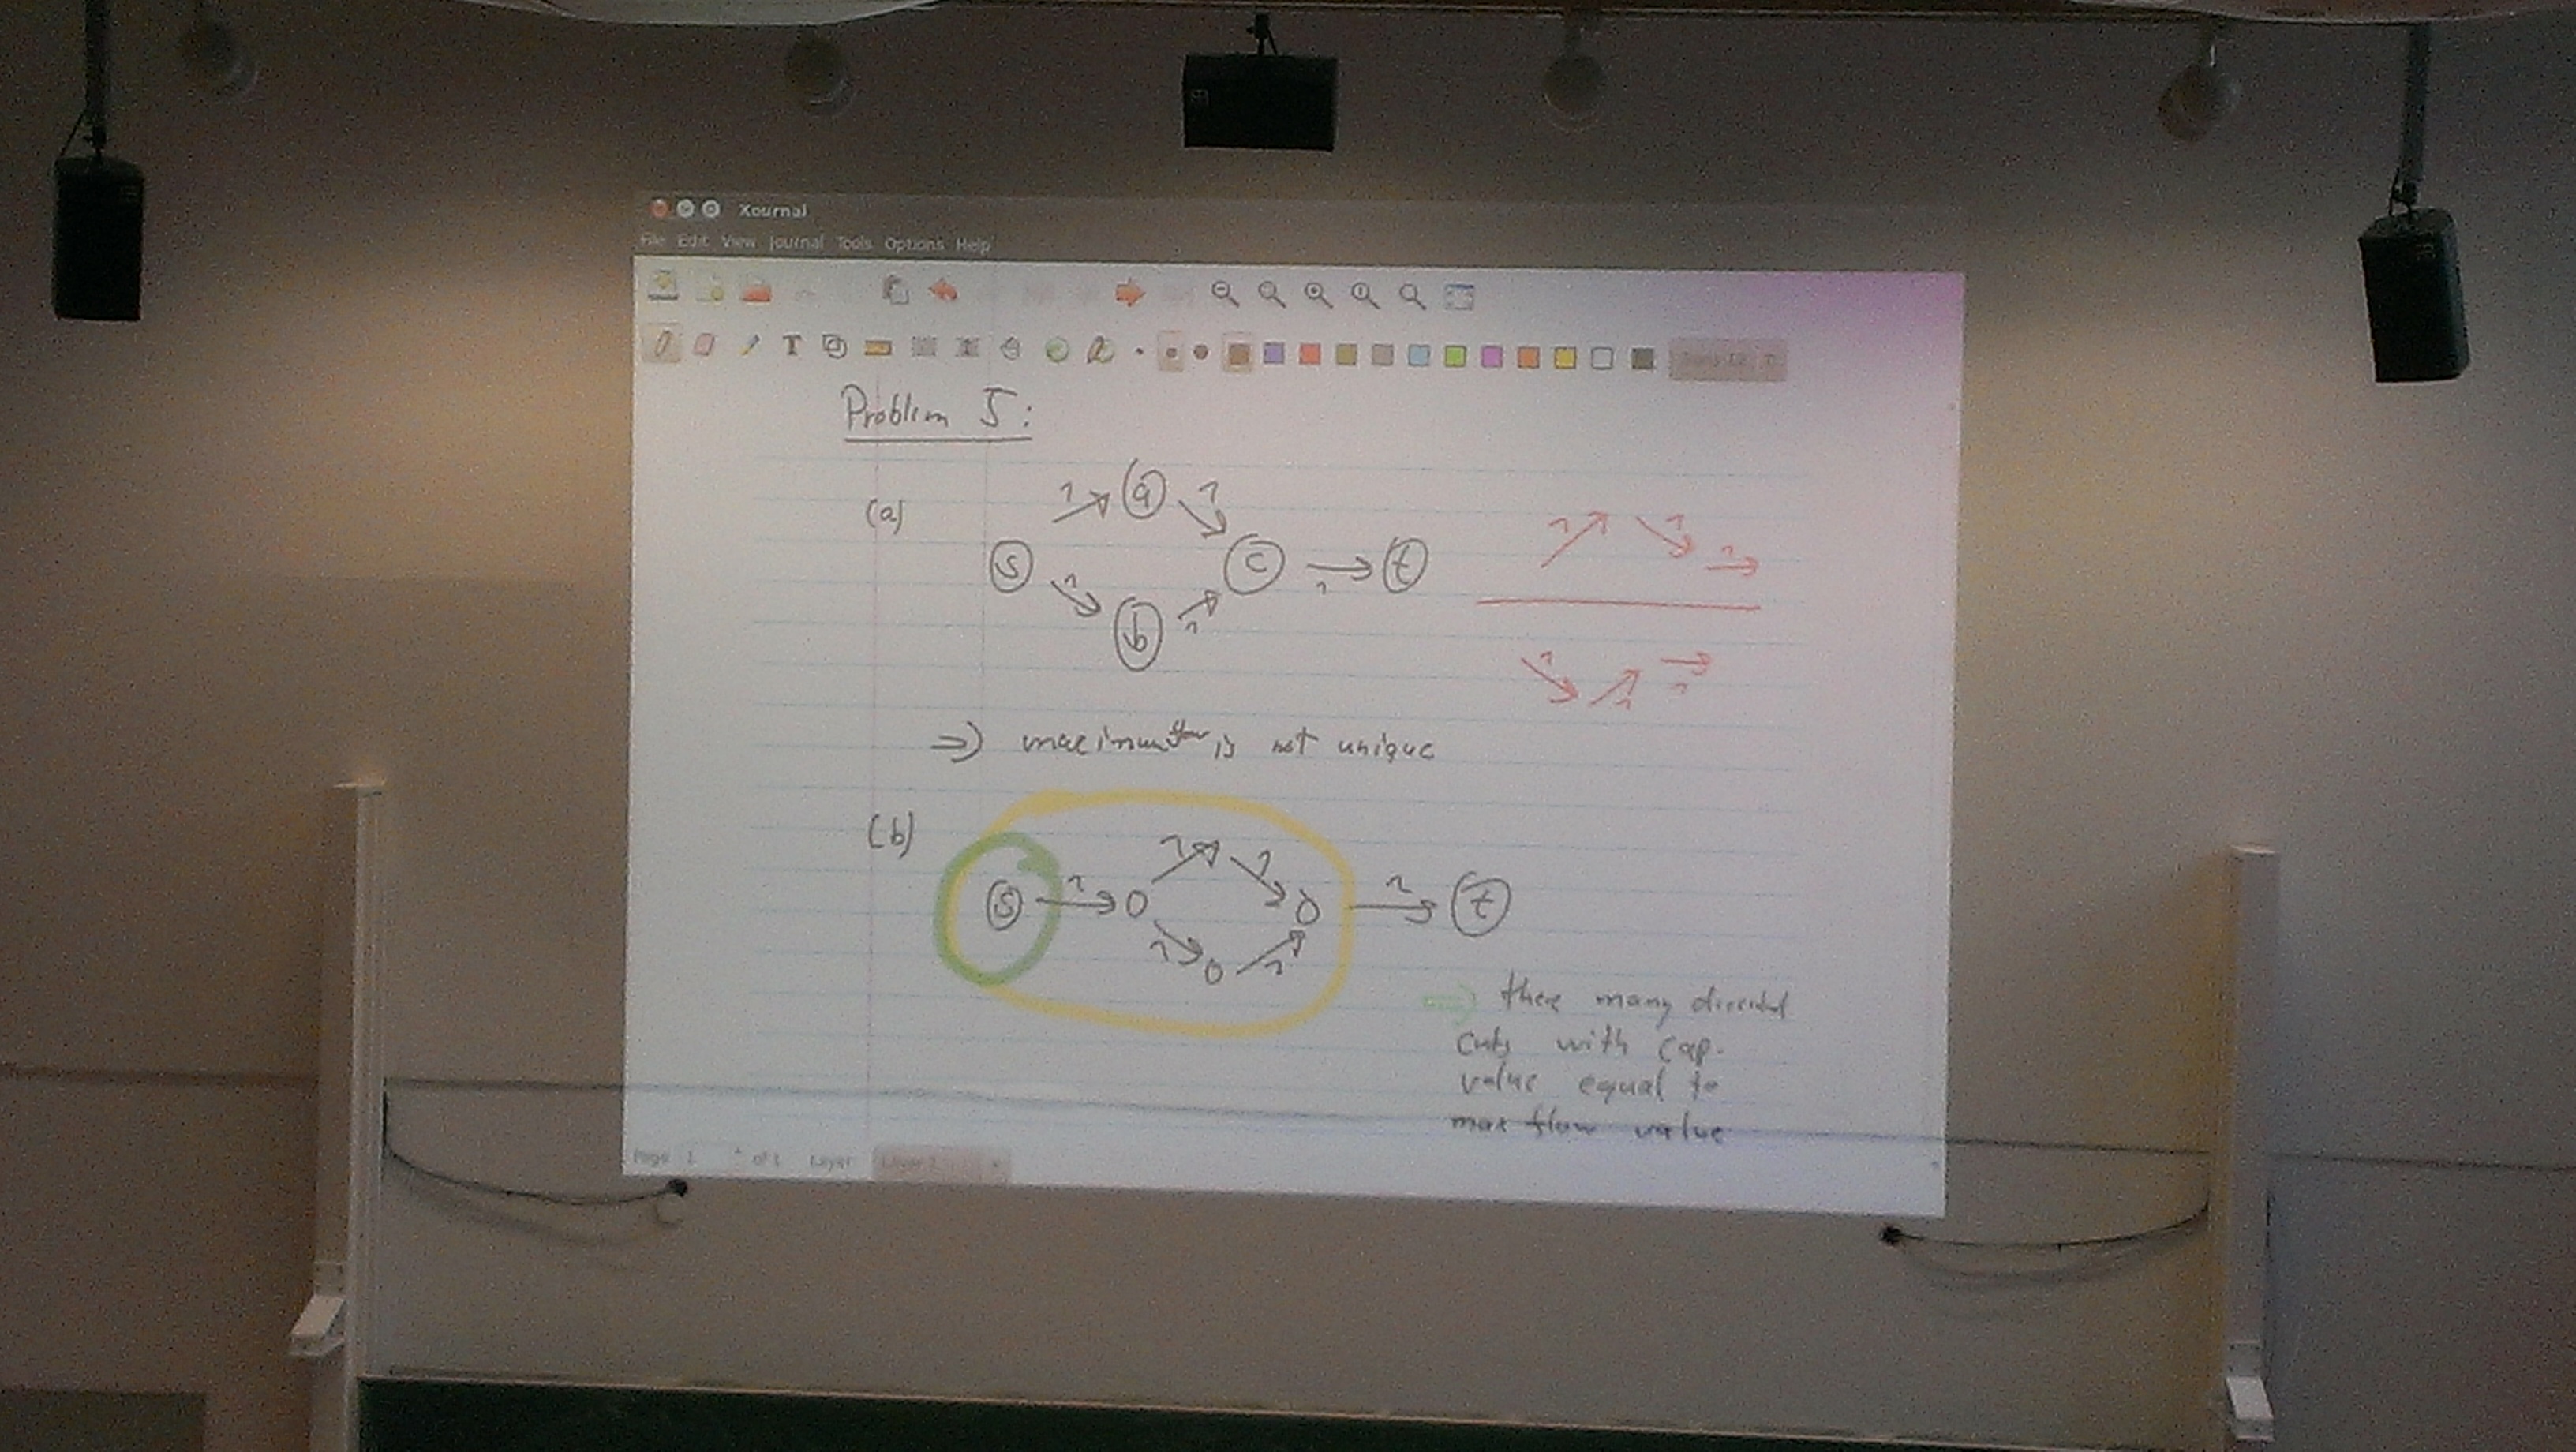 Xournal
File Edit View Journal Tools Options Help
T
Problem 5:
(a)
1 a 1
s c t
1 1 1
b
1 1 1
1 1 1
=) maximum flow is not unique
(b)
1 1
s 1 0 0 1 t
1 0 1
=) there many
cuts with cap.
value equal to
max flow value
Page 1 of 1 Layer Layer 1